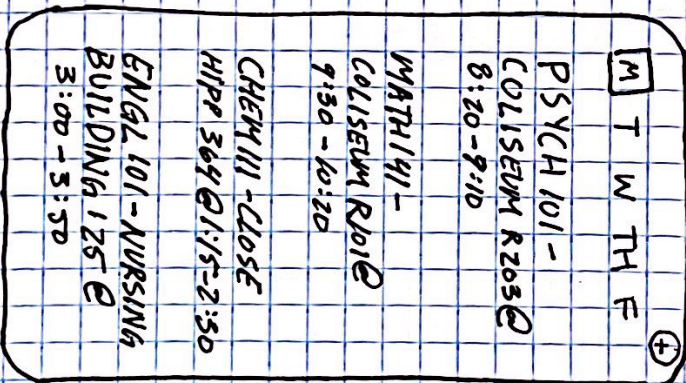 M T W TH F +
PSYCH 101 -
COLISEUM R203@
8:20-9:10
MATH 141 -
COLISEUM R101@
9:30-10:20
CHEM 111 - CLOSE
HIPP 364@1:15-2:30
ENGL 101 - NURSING
BUILDING 125@
3:00-3:50